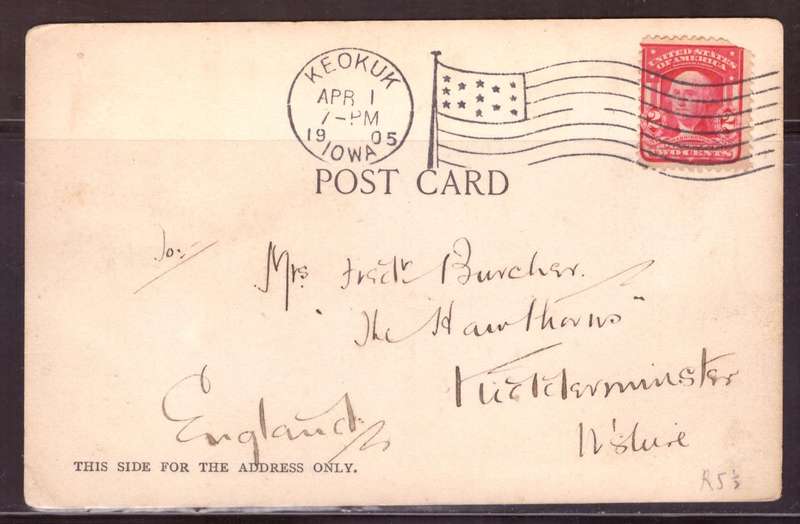 KEOKUK
APR 1
7-PM
1905
IOWA
UNITED STATES
OF AMERICA
2 2
TWO CENTS
POST CARD
To:-
Mrs. Fredr Burcher.
"The Hawthorns"
Kidderminster
W'shire
England
THIS SIDE FOR THE ADDRESS ONLY.